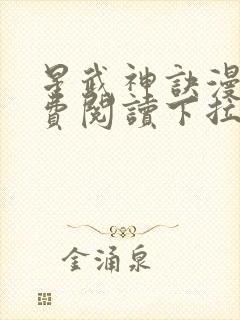 星武神訣漫
費閱讀下拉
金涌泉